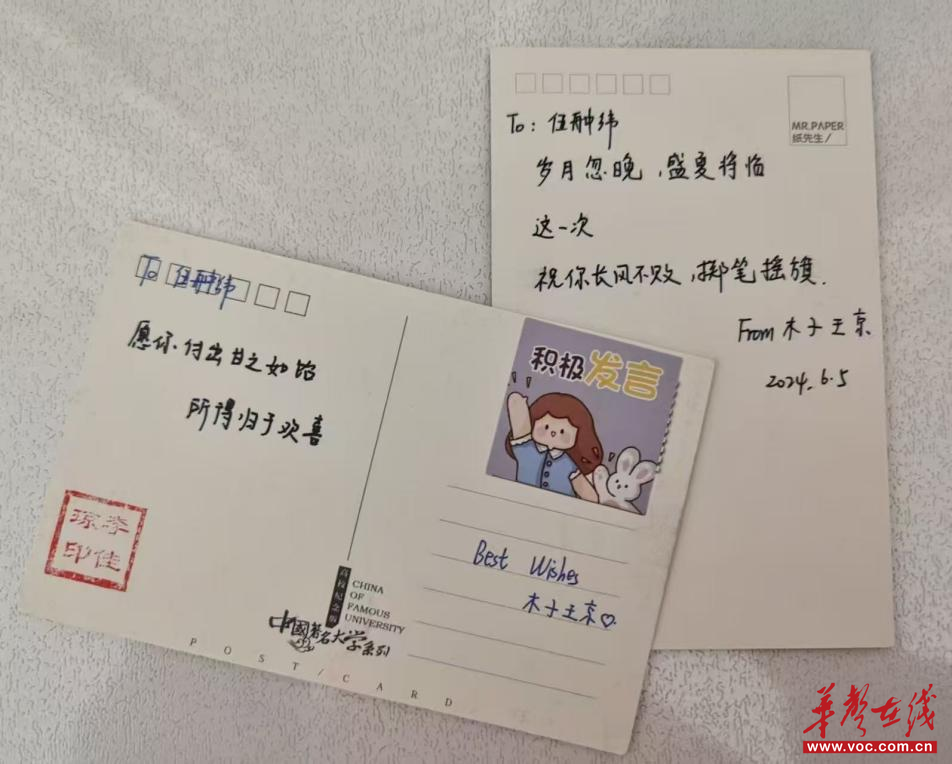 To 任翀纬
愿你.付出甘之如饴
所得归于欢喜
李佳
琼印
积极发言
Best Wishes
木子王京♡
高校纪念版
CHINA
OF
FAMOUS
UNIVERSITY
中國著名大学系列
POST/CARD
MR.PAPER
纸先生/
To: 任翀纬
岁月忽晚,盛夏将临
这一次
祝你长风不败,掷笔摇旗.
From 木子王京
2024.6.5
华声在线
www.voc.com.cn